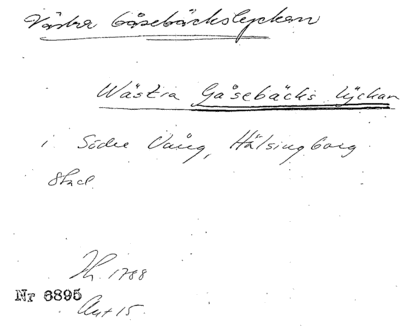 Västra Gåsebäckslyckan
Wästra Gåsebäcks lyckan
i Södre Vång, Hälsingborg
Stad
Jh. 1788
Nr 6895
Akt 15.